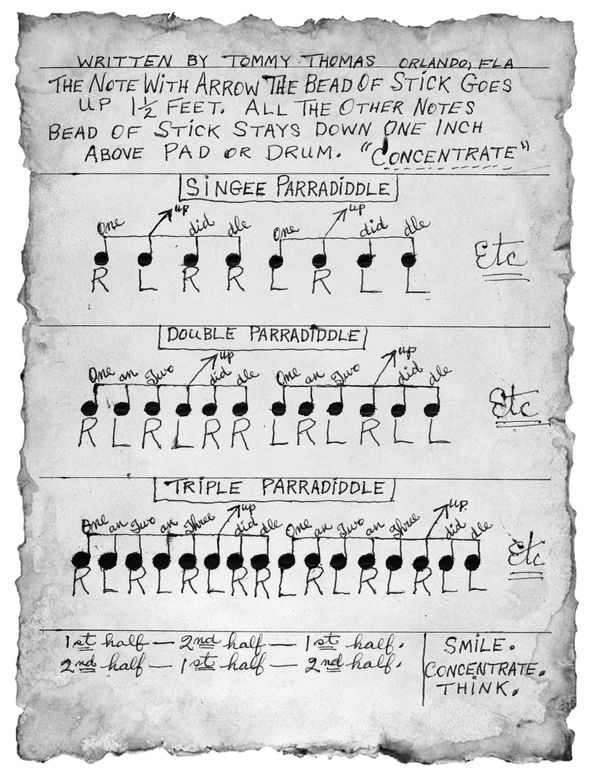 WRITTEN BY TOMMY THOMAS ORLANDO, FLA
THE NOTE WITH ARROW THE BEAD OF STICK GOES
UP 1½ FEET. ALL THE OTHER NOTES
BEAD OF STICK STAYS DOWN ONE INCH
ABOVE PAD OR DRUM. "CONCENTRATE"
SINGEE PARRADIDDLE
One up did dle One up did dle
R L R R L R L L Etc
DOUBLE PARRADIDDLE
One an Two up did dle One an Two up did dle
R L R L R R L R L R L L Etc
TRIPLE PARRADIDDLE
One an Two an Three up did dle One an Two an Three up did dle
R L R L R L R R L R L R L R L L Etc
1st half — 2nd half — 1st half.
2nd half — 1st half — 2nd half.
SMILE.
CONCENTRATE.
THINK.